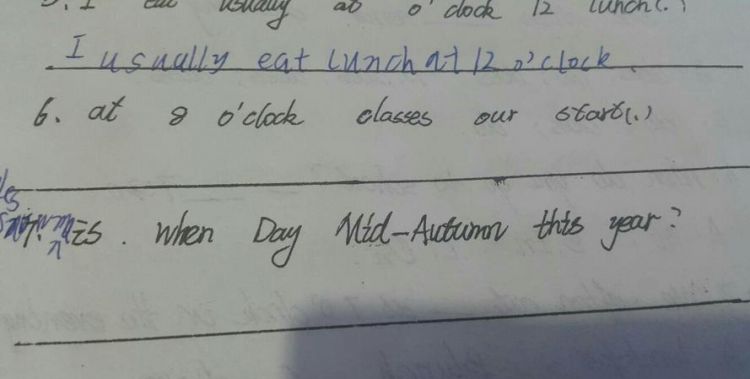 5. I eat usually at o'clock 12 lunch(.)
I usually eat lunch at 12 o'clock.
6. at 8 o'clock classes our start(.)
is. when Day Mid-Autumn this year?